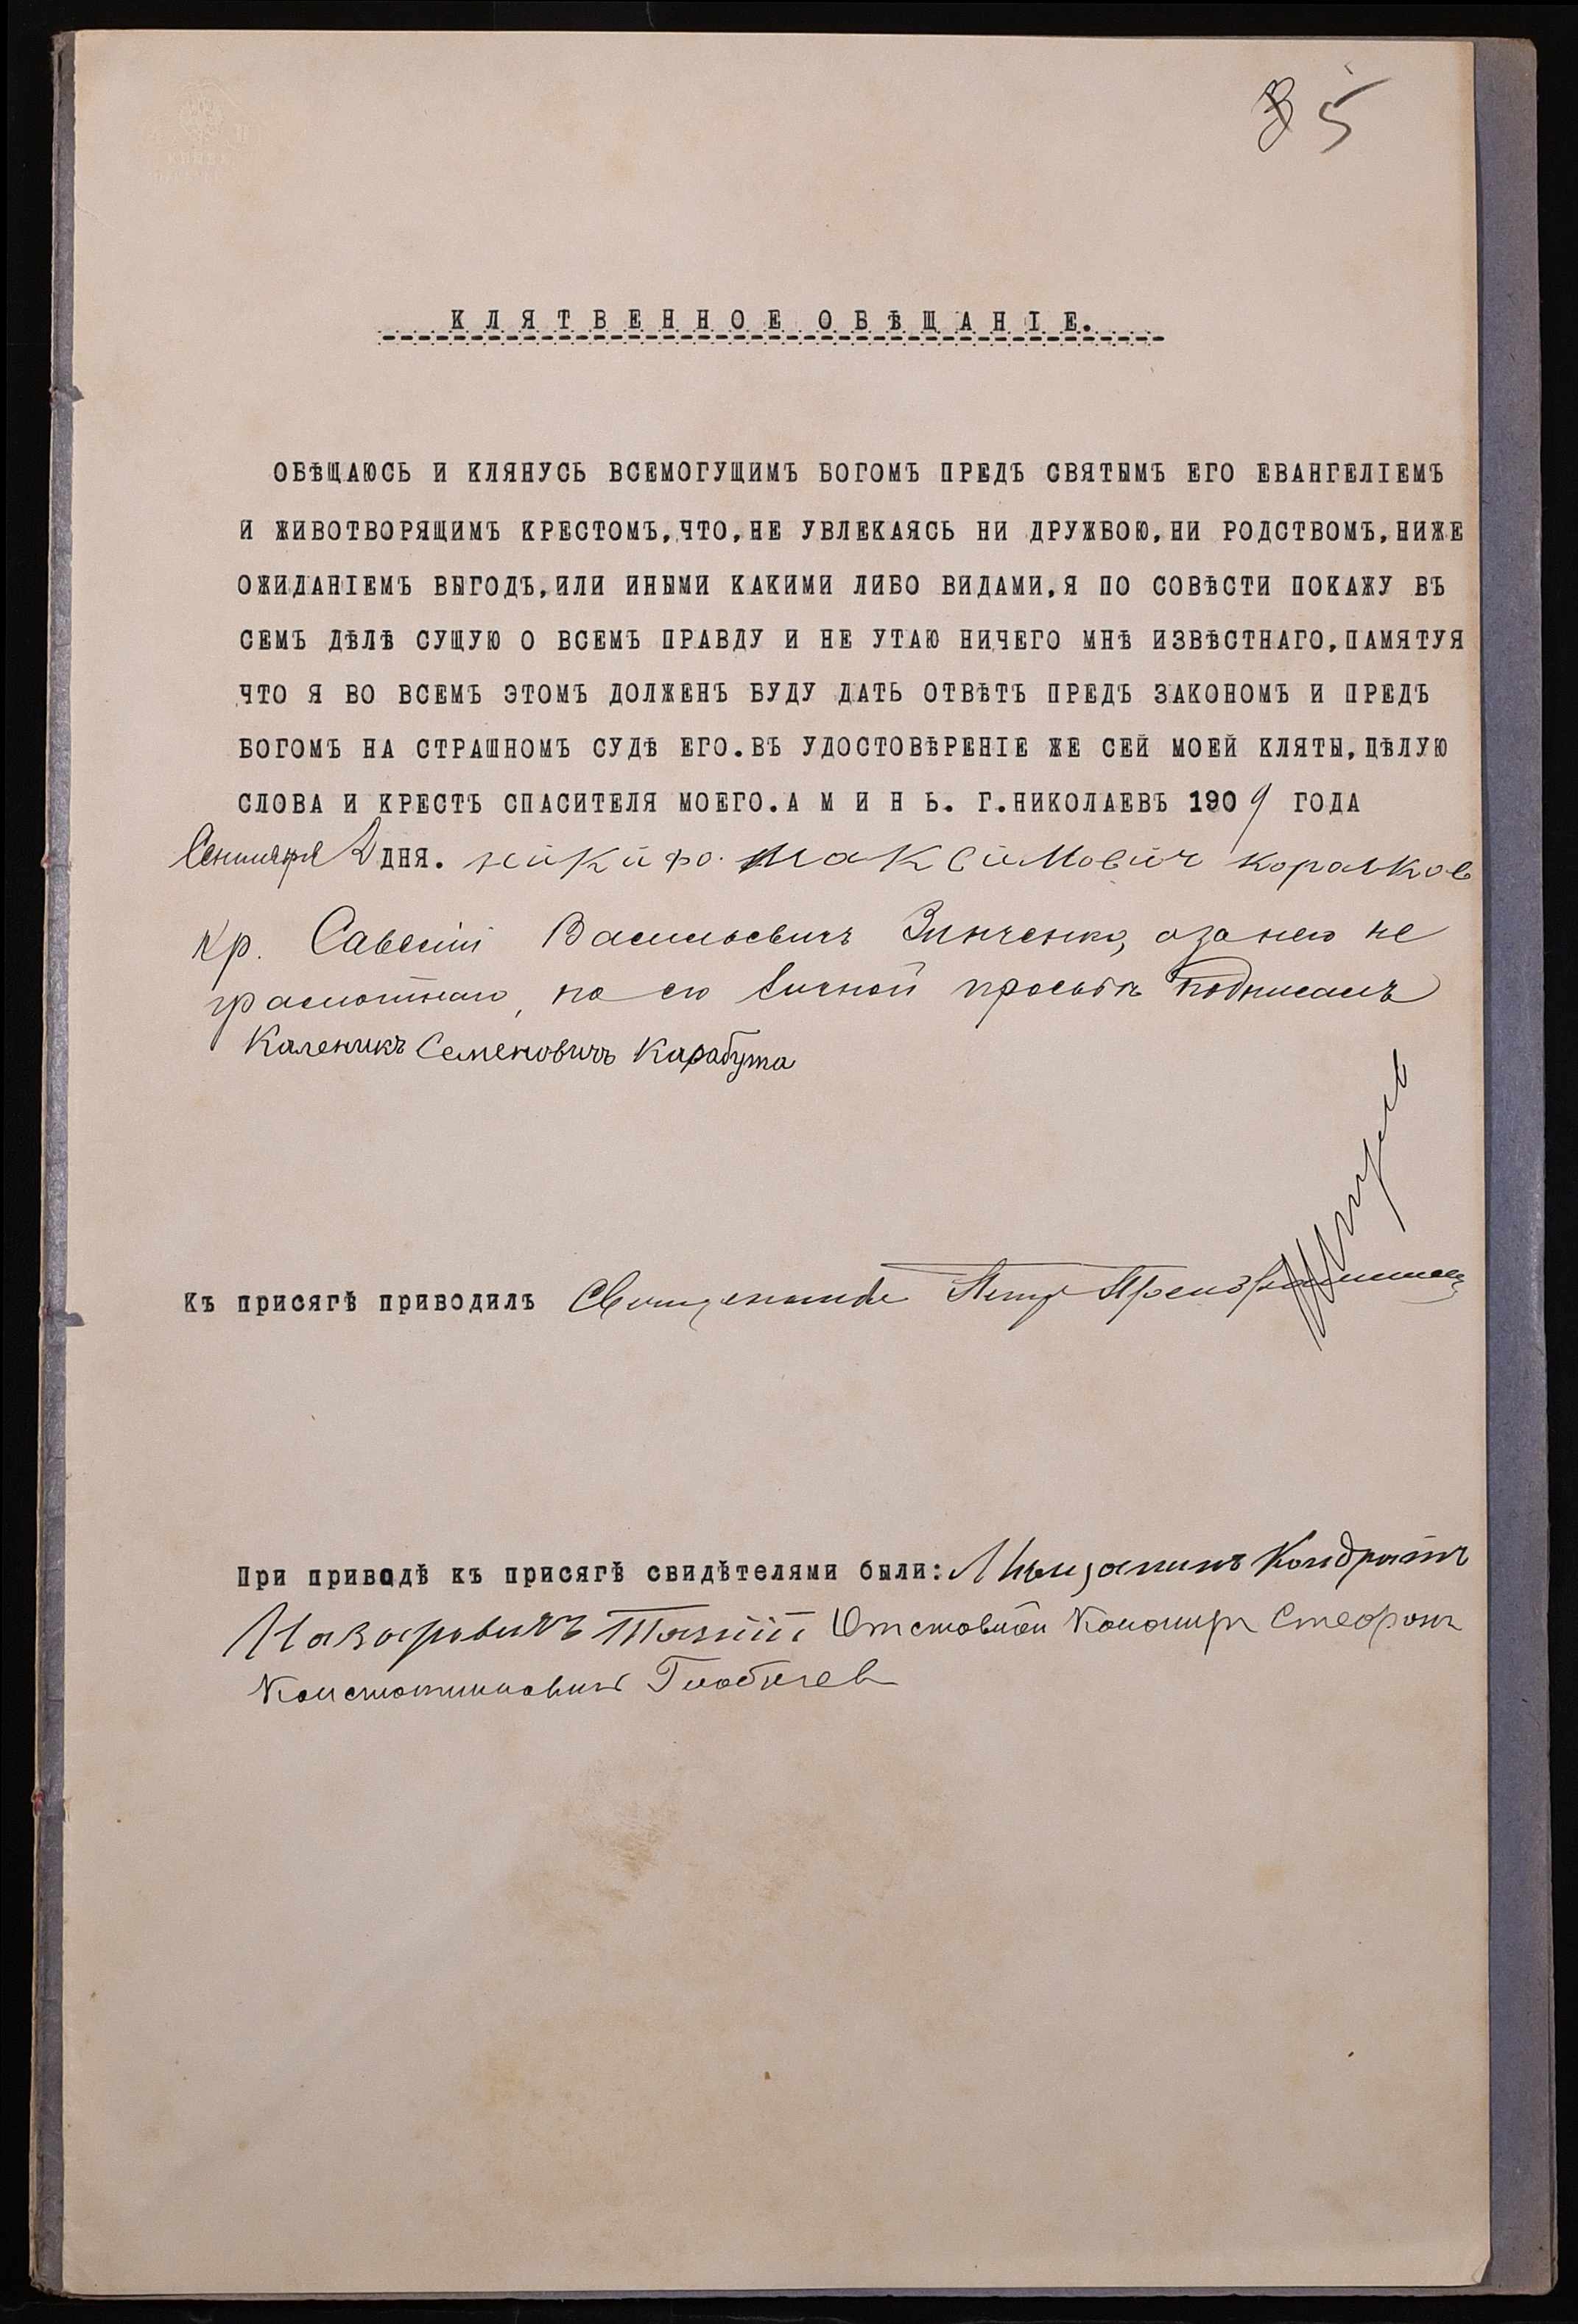 5
КЛЯТВЕННОЕ ОБѢЩАНІЕ.
ОБѢЩАЮСЬ И КЛЯНУСЬ ВСЕМОГУЩИМЪ БОГОМЪ ПРЕДЪ СВЯТЫМЪ ЕГО ЕВАНГЕЛІЕМЪ
И ЖИВОТВОРЯЩИМЪ КРЕСТОМЪ, ЧТО, НЕ УВЛЕКАЯСЬ НИ ДРУЖБОЮ, НИ РОДСТВОМЪ, НИЖЕ
ОЖИДАНІЕМЪ ВЫГОДЪ, ИЛИ ИНЫМИ КАКИМИ ЛИБО ВИДАМИ, Я ПО СОВѢСТИ ПОКАЖУ ВЪ
СЕМЪ ДѢЛѢ СУЩУЮ О ВСЕМЪ ПРАВДУ И НЕ УТАЮ НИЧЕГО МНѢ ИЗВѢСТНАГО, ПАМЯТУЯ
ЧТО Я ВО ВСЕМЪ ЭТОМЪ ДОЛЖЕНЪ БУДУ ДАТЬ ОТВѢТЪ ПРЕДЪ ЗАКОНОМЪ И ПРЕДЪ
БОГОМЪ НА СТРАШНОМЪ СУДѢ ЕГО. ВЪ УДОСТОВѢРЕНІЕ ЖЕ СЕЙ МОЕЙ КЛЯТЫ, ЦѢЛУЮ
СЛОВА И КРЕСТЪ СПАСИТЕЛЯ МОЕГО. А М И Н Ь. Г. НИКОЛАЕВЪ 1909 ГОДА
Сентября 2 ДНЯ. никифо. максимович
кр. Савелій Васильевичъ Зинченко, а за него не
грамотнаго, по его личной просьбѣ подписалъ
Каленикъ Семеновичъ Карабута
Къ присягѣ приводилъ Священникъ Петр
При приводѣ къ присягѣ свидѣтелями были: Мѣщанинъ Кондратъ
Назаровичъ Отставной Стефанъ
Константиновичъ